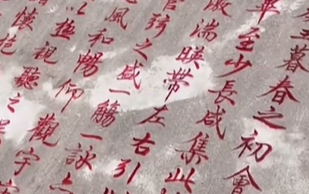 丑暮春之初會
畢至少長咸集此
激湍映帶左右引
弦之盛一觴一詠
風和暢仰觀宇
極視聽之